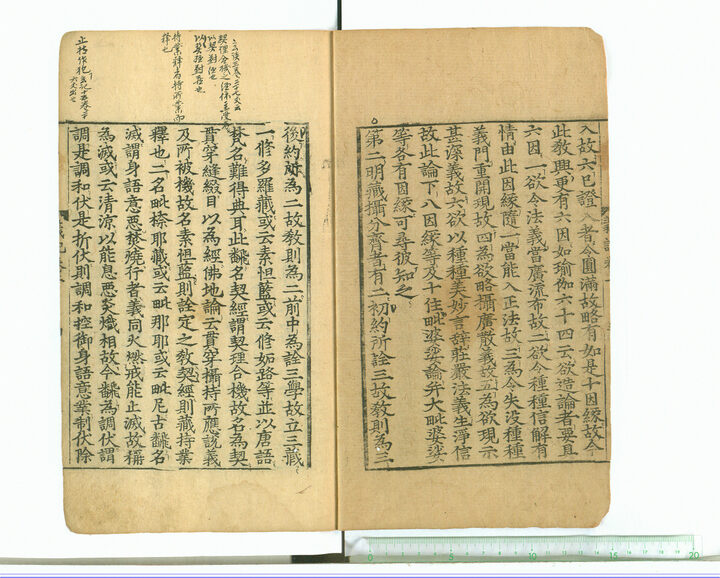 入故六已證入者令圓滿故略有如是十因緣故今
此教興更有六因如瑜伽六十四云欲造論者要具
六因一欲令法義當廣流布故二欲令種種信解有
情由此因緣隨一當能入正法故三為令失沒種種
義門重開現故四為欲略攝廣散義故五為欲現示
甚深義故六欲以種種美妙言詞莊嚴法義生淨信
故此論下八因緣等及十住毗婆娑論弁大毗婆娑
等各有因緣可尋彼知之
第二明藏攝分齊者有二初約所詮三故教則為三
後約所為二故教則為二前中為詮三學故立三藏
一修多羅藏或云素怛藍或云修妬路等並以唐語
梵名難得典耳此飜名契經謂契理合機故名為契
貫穿縫綴目以為經佛地論云貫穿攝持所應說義
及所被機故名素怛藍則詮定之教契經則藏持業
釋也二名毗柰耶藏或云毗那耶或云毗尼古飜名
滅謂身語意惡焚燒行者義同火燃戒能止滅故稱
為滅或云清涼以能息惡炎熾相故今飜為調伏謂
調是調和伏是折伏則調和控御身語意業制伏除